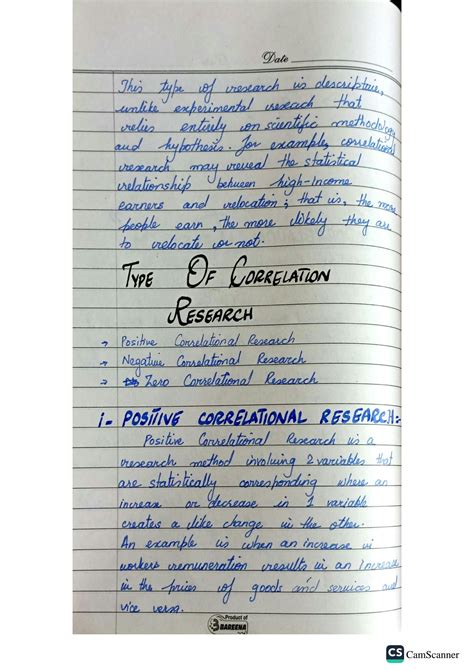 Date
This type of research is descriptive,
unlike experimental reseach that
relies entirely on scientific methodology
and hypothesis. For example, correlational
research may reveal the statistical
relationship between high-income
earners and relocation; that is, the more
people earn, the more likely they are
to relocate or not.
TYPE OF CORRELATION
RESEARCH
→ Positive Correlational Research
→ Negative Correlational Research
→ Zero Correlational Research
i- POSITIVE CORRELATIONAL RESEARCH:-
Positive Correlational Research is a
research method involving 2 variables that
are statistically corresponding where an
increase or decrease in 1 variable
creates a like change in the other.
An example is when an increase in
workers remuneration results in an increase
in the prices of goods and services and
vice versa.
Product of
BAREENA
CS CamScanner